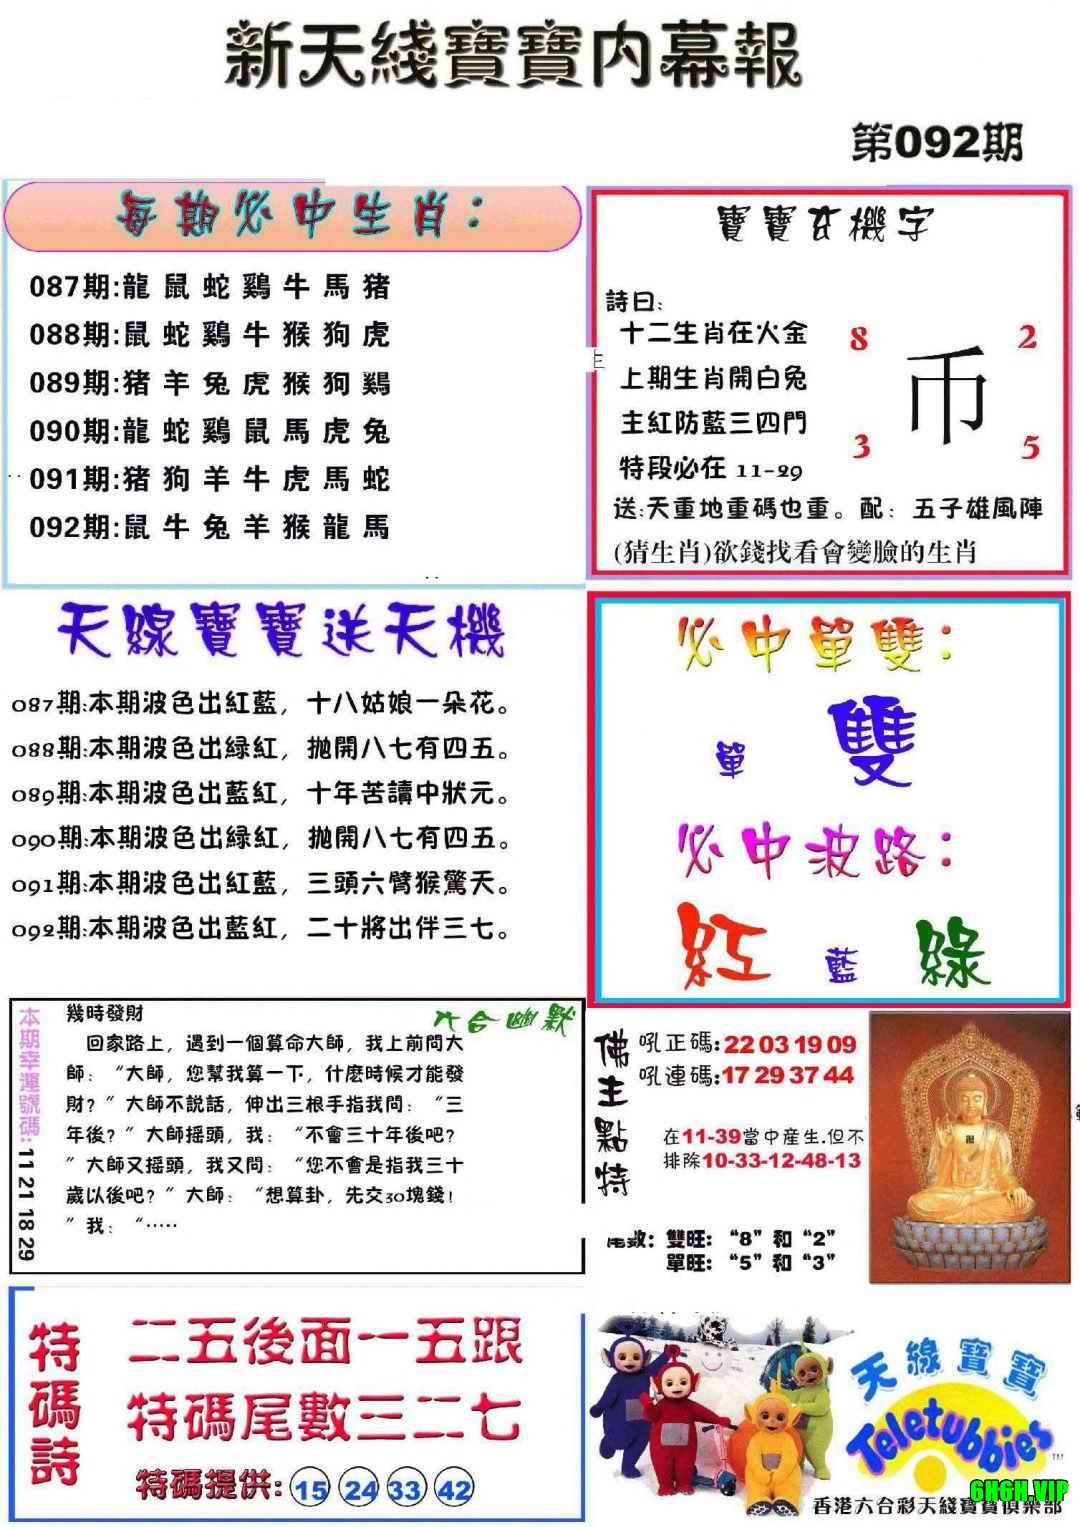 新天綫寶寶内幕報
第092期
每期必中生肖：
087期:龍鼠蛇鷄牛馬猪
088期:鼠蛇鷄牛猴狗虎
089期:猪羊兔虎猴狗鷄
090期:龍蛇鷄鼠馬虎兔
091期:猪狗羊牛虎馬蛇
092期:鼠牛兔羊猴龍馬
寶寶玄機字
詩曰:
十二生肖在火金
上期生肖開白兔
主紅防藍三四門
特段必在 11-29
8 2
币
3 5
送:天重地重碼也重。配：五子雄風陣
(猜生肖)欲錢找看會變臉的生肖
天線寶寶送天機
087期:本期波色出紅藍，十八姑娘一朵花。
088期:本期波色出緑紅，抛開八七有四五。
089期:本期波色出藍紅，十年苦讀中狀元。
090期:本期波色出緑紅，抛開八七有四五。
091期:本期波色出紅藍，三頭六臂猴驚天。
092期:本期波色出藍紅，二十將出伴三七。
必中單雙：
單 雙
必中波路：
紅 藍 綠
本期幸運號碼: 11 21 18 29
六合幽默
幾時發財
回家路上，遇到一個算命大師，我上前問大
師：“大師，您幫我算一下，什麽時候才能發
財？”大師不説話，伸出三根手指我問：“三
年後？”大師摇頭，我：“不會三十年後吧？
”大師又摇頭，我又問：“您不會是指我三十
歲以後吧？”大師：“想算卦，先交30塊錢！
”我：“·····
佛主點特
吼正碼:22 03 19 09
吼連碼:17 29 37 44
在11-39當中産生.但不
排除10-33-12-48-13
尾數：雙旺：“8”和“2”
單旺：“5”和“3”
特碼詩
二五後面一五跟
特碼尾數三二七
特碼提供: 15 24 33 42
天線寶寶
Teletubbies
TM
6H6H.VIP
香港六合彩天綫寶寶俱樂部